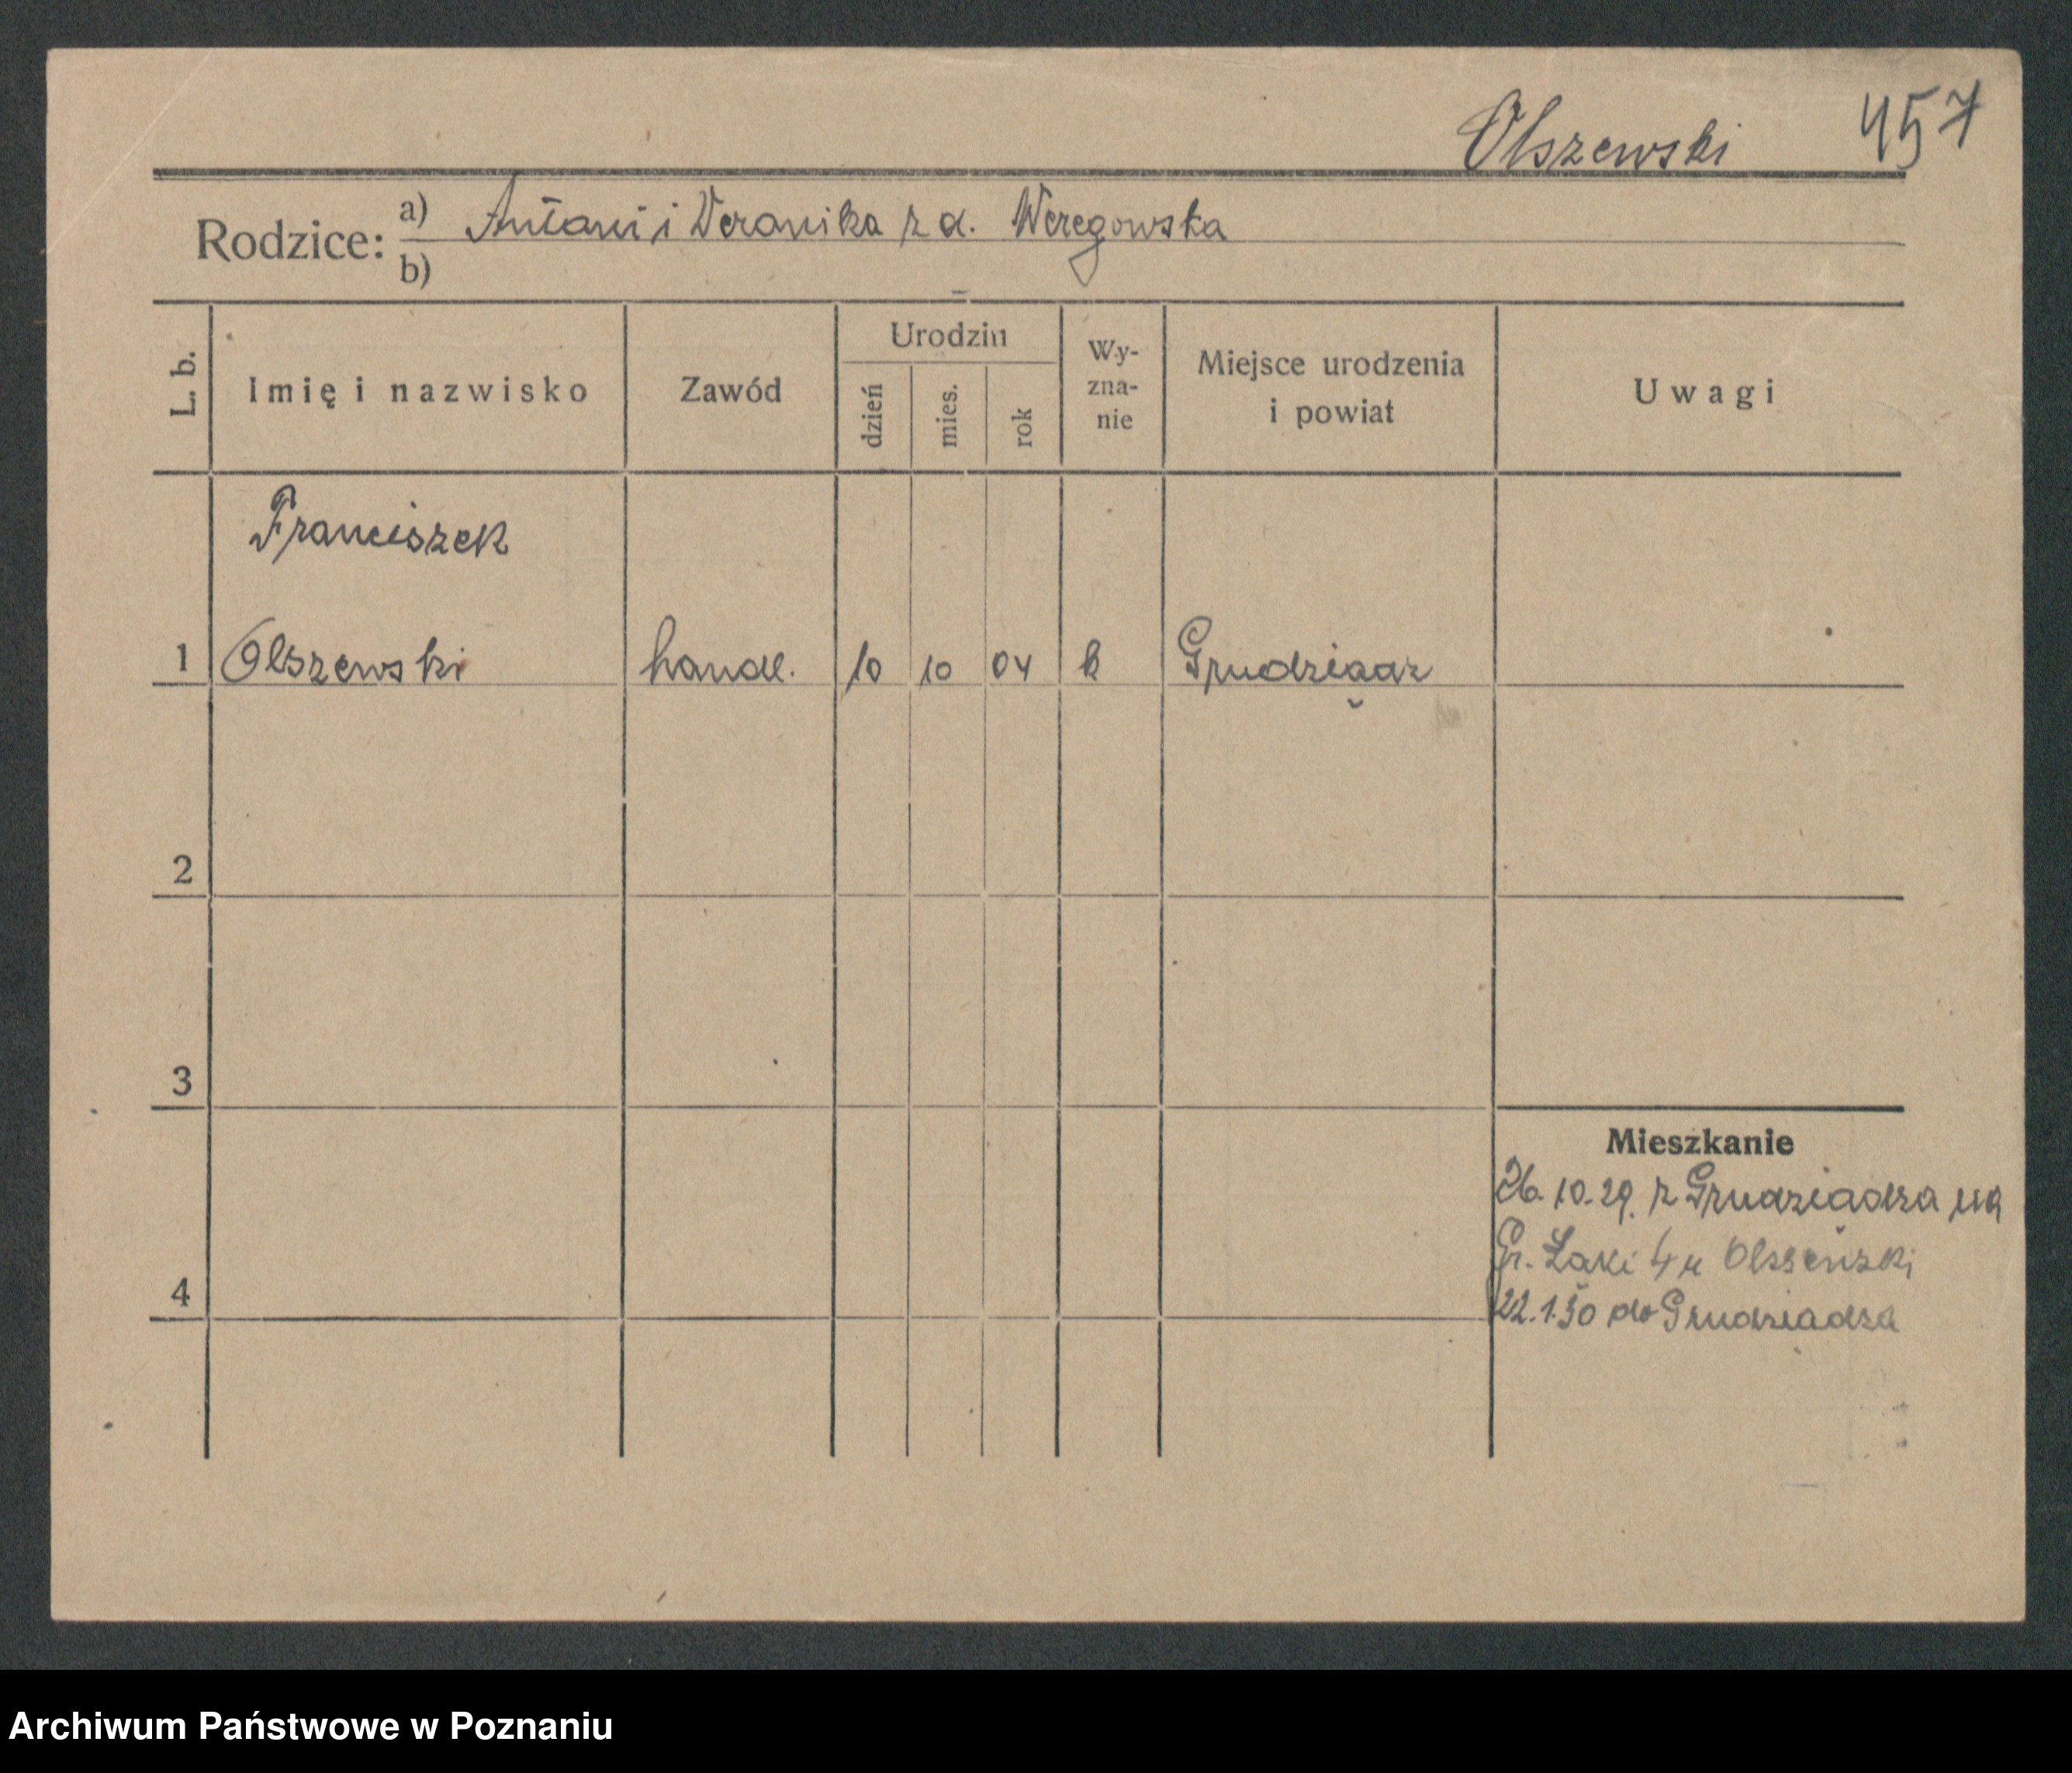 Olszewski 457
Rodzice: a) Antoni i Weronika z d. Weregowska
b)
L. b.
Imię i nazwisko
Zawód
Urodzin
dzień
mies.
rok
Wy-
zna-
nie
Miejsce urodzenia
i powiat
Uwagi
Franciszek
1 Olszewski handl. 10 10 04 k Grudziądz
2
3
4
Mieszkanie
26.10.29. z Grudziądza na
Gr. Łąki 4 u
22.1.30 do Grudziądza
Archiwum Państwowe w Poznaniu